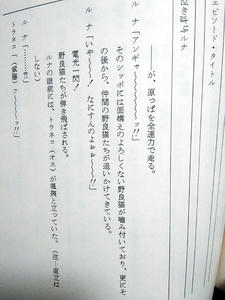 エピソード・タイトル
泣き叫ぶルナ
――が、原っぱを全速力で走る。
ルナ「アンギャ〜〜〜〜ッ!!」
そのシッポには面構えのよろしくない野良猫が噛み付いており、更にそ
の後から、仲間の野良猫たちが追いかけてきている。
ルナ「いや〜〜〜!! なにすんのよおぉ〜〜!!」
電光一閃！
野良猫たちが弾き飛ばされる。
ルナの眼前には、トラネコ（オス）が颯爽と立っていた。（注―直立は
しない）
ルナ「………!!」
トラネコ「（威嚇）フ〜〜〜〜ッ!!」